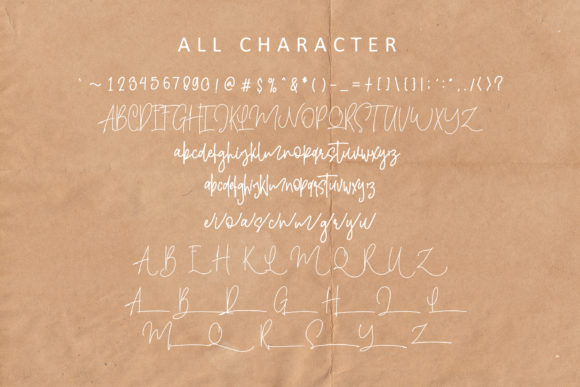 ALL CHARACTER
`~1234567890!@#$%^&*()-_=+[]\{}|;':",./<>?
ABCDEFGHIJKLMNOPQRSTUVWXYZ
abcdefghijklmnopqrstuvwxyz
abcdefghijklmnopqrstuvwxyz
e r o a s c h m n g r y u
A B E H K L M O R U Z
A B D G H I L
M Q R S Y Z